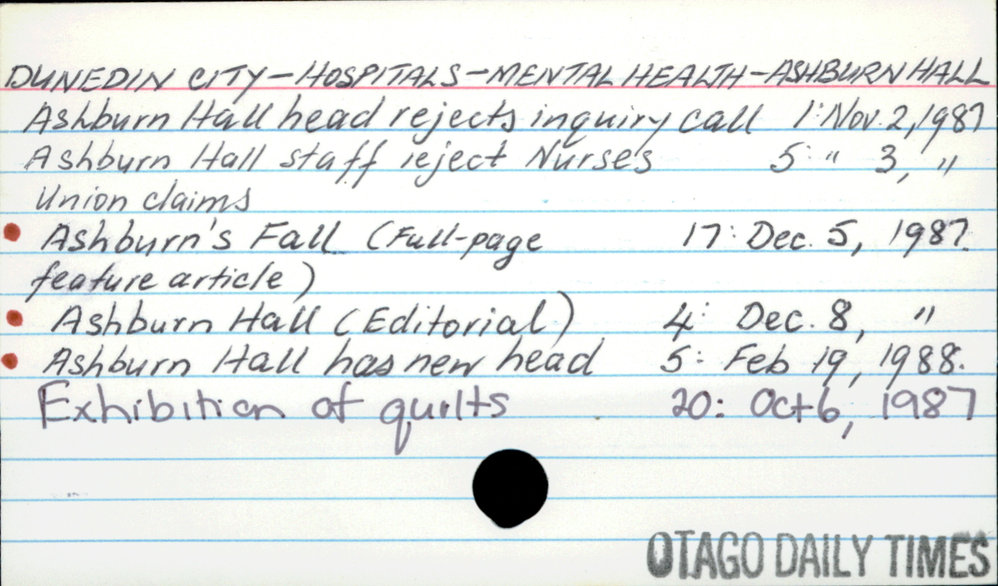 DUNEDIN CITY - HOSPITALS - MENTAL HEALTH - ASHBURN HALL
Ashburn Hall head rejects inquiry call 1: Nov. 2, 1987
Ashburn Hall staff reject Nurses 5: " 3, "
Union claims
Ashburn's Fall (Full-page 17: Dec. 5, 1987.
feature article)
Ashburn Hall (Editorial) 4: Dec. 8, "
Ashburn Hall has new head 5: Feb 19, 1988.
Exhibition of quilts 20: Oct 6, 1987
OTAGO DAILY TIMES